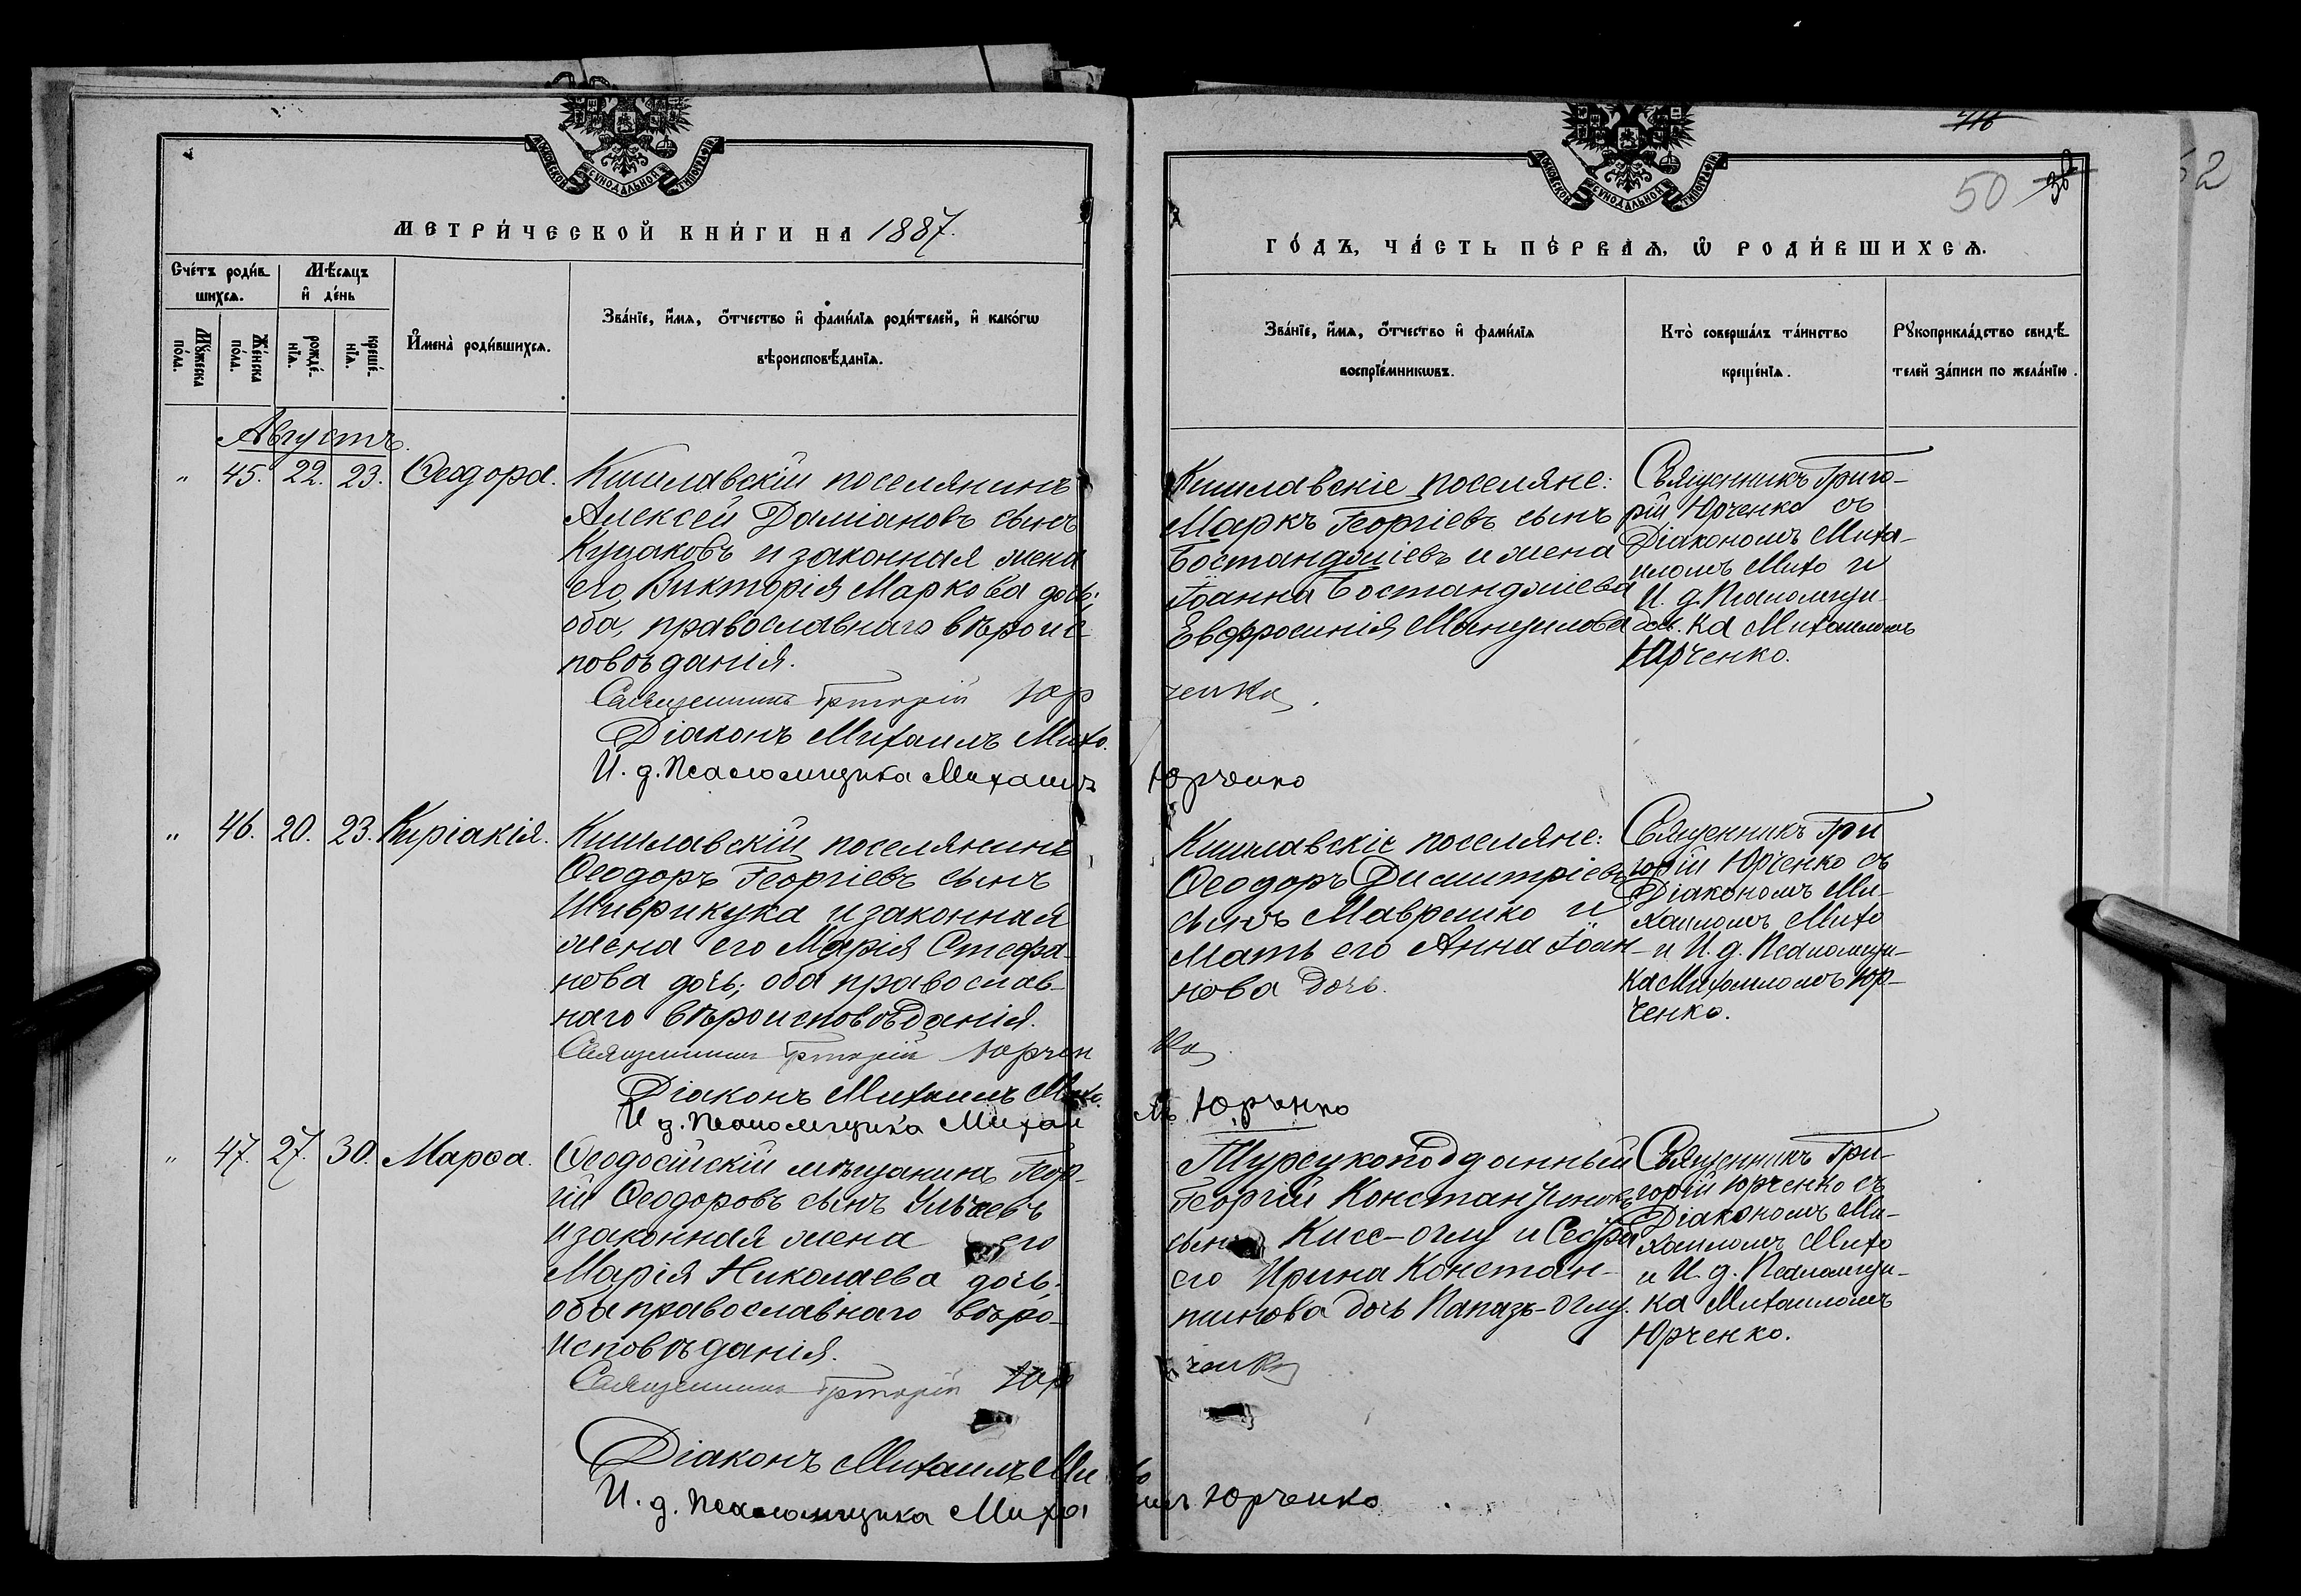 МОСКОВСКОЙ СѴНОДАЛЬНОЙ ТИПОГРАФІИ
МЕТРИ́ЧЕСКОЙ КНИ́ГИ НА 1887.
Сче́тъ роди́в
шихсѧ.
Мѣ́сѧцъ
и҆ де́нь
Мꙋ́жеска
по́ла.
Же́нска
по́ла.
рожде́-
нїѧ.
креще́-
нїѧ.
И҆мена̀ роди́вшихсѧ.
Зва́нїе, и҆́мѧ, ѻ҆́тчество и҆ фами́лїѧ роди́телей, и҆ како́гѡ
вѣроисповѣ́данїѧ.
Августъ.
„ 45. 22. 23. Ѳеодора.
Кишлавскій поселянинъ
Алексей Даміановъ сынъ
Куцаковъ и законная жена
его Викторія Маркова дочь;
оба, православнаго вѣроис
повѣданія.
Священникъ Григорій Юр
Діаконъ Михаилъ Михо.
И. д. Псаломщика Михаилъ
„ 46. 20. 23. Киріакія.
Кишлавскій поселянинъ
Ѳеодоръ Георгіевъ сынъ
Шиврикука и законная
жена его Марія Стефа-
нова дочь; оба православ-
наго вѣроисповѣданія.
Священникъ Григорій Юрчен
Діаконъ Михаилъ Михо.
И д. Псаломщика Михаи
„ 47. 27. 30. Марѳа.
Ѳеодосійскій мѣщанинъ Геор-
гій Ѳеодоровъ сынъ
и законная жена его
Марія Николаева дочь;
оба православнаго вѣро-
исповѣданія.
Священникъ Григорій Юр
Діаконъ Михаилъ Ми
И. д. Псаломщика Миха
МОСКОВСКОЙ СѴНОДАЛЬНОЙ ТИПОГРАФІИ
50
52
ГО́ДЪ, ЧА́СТЬ ПЕ́РВАѦ, Ѡ҆ РОДИ́ВШИХСѦ.
Зва́нїе, и҆́мѧ, ѻ҆́тчество и҆ фами́лїѧ
воспрїе́мникѡвъ.
Кто̀ соверша́лъ та́инство
креще́нїѧ.
Рꙋкоприкла́дство свидѣ́-
телей за́писи по жела́нїю.
Кишлавскіе поселяне:
Маркъ Георгіевъ сынъ
Бостанджіевъ и жена
Іоанна Бостанджіева
Евфросинія
Священникъ Григо-
рій Юрченко съ
Діакономъ Миха-
иломъ Михо и
И. д. Псаломщи-
ка Михаиломъ
Юрченко.
ченко
Юрченко
Кишлавскіе поселяне:
Ѳеодоръ Димитріевъ
сынъ Маврешко и
мать его Анна Іоан-
нова дочь.
Священникъ Гри
горій Юрченко съ
Діакономъ Ми-
хаиломъ Михо
и И. д. Псаломщи-
ка Михаиломъ Юр-
ченко.
ко
лъ Юрченко
Турецкоподданный
Георгій Константиновъ
сынъ Кисс-оглу и Сестра
его Ирина Констан-
тинова дочь Папазъ-оглу.
Священникъ Гри-
горій Юрченко съ
Діакономъ Ми-
хаиломъ Михо
и И. д. Псаломщи-
ка Михаиломъ
Юрченко.
ченко
хо
илъ Юрченко